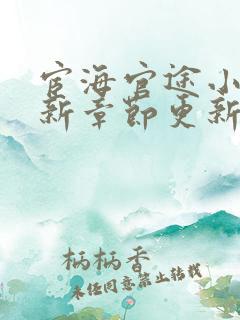 宦海官途小
新章节更新
柄柄香
未经同意禁止转载